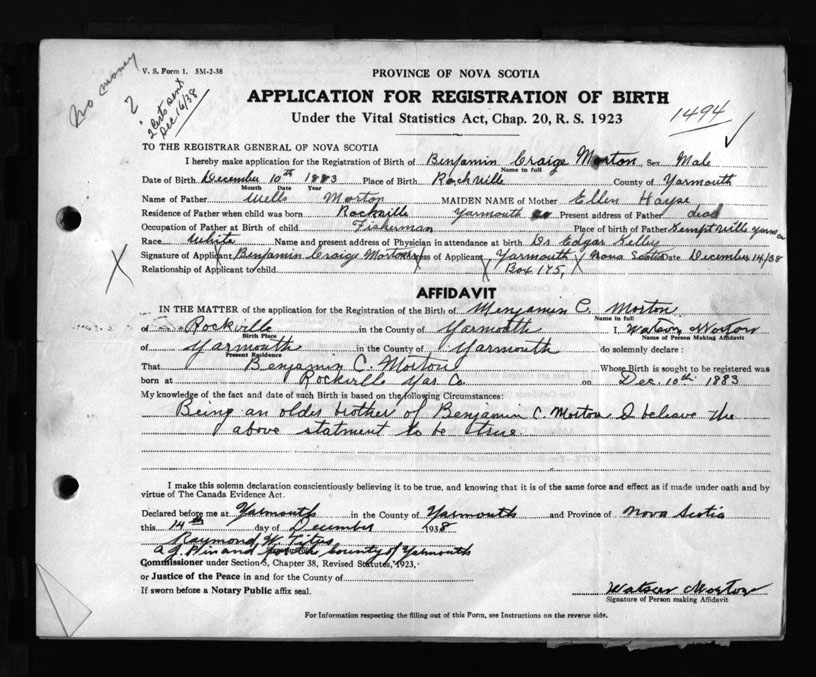 no money
V. S. Form 1. 5M-2-38
2
Dec 16/38
PROVINCE OF NOVA SCOTIA
APPLICATION FOR REGISTRATION OF BIRTH
Under the Vital Statistics Act, Chap. 20, R. S. 1923
1494
TO THE REGISTRAR GENERAL OF NOVA SCOTIA
I hereby make application for the Registration of Birth of Benjamin Craige Morton, Sex Male
Name in full
Date of Birth December 10th 1883 Place of Birth Rockville County of Yarmouth
Month Date Year
Name of Father Wells Morton MAIDEN NAME of Mother Ellen
Residence of Father when child was born Rockville Yarmouth Co Present address of Father dead
Occupation of Father at Birth of child Fisherman Place of birth of Father Kemptville Yarm Co
Race white Name and present address of Physician in attendance at birth Dr Edgar Kelley
Signature of Applicant Benjamin Craige Morton Address of Applicant Yarmouth Nova Scotia Date December 14/38
Relationship of Applicant to child Box 175,
AFFIDAVIT
IN THE MATTER of the application for the Registration of the Birth of Menjamin C. Morton
Name in full
of Rockville in the County of Yarmouth I, Watson Morton
Birth Place Name of Person Making Affidavit
of Yarmouth in the County of Yarmouth do solemnly declare :
Present Residence
That Benjamin C. Morton Whose Birth is sought to be registered was
born at Rockville Yar Co. on Dec. 10th 1883
My knowledge of the fact and date of such Birth is based on the following Circumstances:
Being an older brother of Benjamin C. Morton I beleave the
above statment to be true.
I make this solemn declaration conscientiously believing it to be true, and knowing that it is of the same force and effect as if made under oath and by
virtue of The Canada Evidence Act.
Declared before me at Yarmouth in the County of Yarmouth and Province of Nova Scotia
this 14th day of December 1938
Raymond W. Titus
A J. P. in and for the County of Yarmouth
Commissioner under Section 5, Chapter 38, Revised Statutes, 1923,
or Justice of the Peace in and for the County of
If sworn before a Notary Public affix seal.
Watson Morton
Signature of Person making Affidavit
For Information respecting the filling out of this Form, see Instructions on the reverse side.